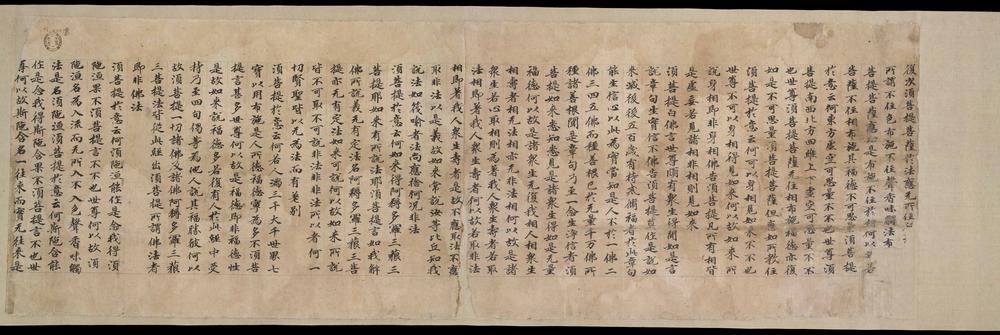 復次須菩提菩薩於法應无所住
所謂不住色布施不住聲香味觸法布
菩提菩薩應如是布施不住於相何以故若
菩薩不住相布施其福德不可思量須菩提
於意云何東方虛空可思量不不也世尊須
菩提南西北方四維上下虛空可思量不不
也世尊須菩提菩薩无住相布施福德亦復
如是不可思量須菩提菩薩但應如所教住
須菩提於意云何可以身相見如來不不也
世尊不可以身相得見如來何以故如來所
說身相即非身相佛告須菩提凡所有相皆
是虛妄若見諸相非相則見如來
須菩提白佛言世尊頗有眾生得聞如是言
說章句生實信不佛告須菩提莫作是說如
來滅後後五百歲有持戒脩福者於此章句
能生信心以此為實當知是人不於一佛二
佛三四五佛而種善根已於无量千萬佛所
種諸善根聞是章句乃至一念生淨信者須
菩提如來悉知悉見是諸眾生得如是无量
福德何以故是諸眾生无復我相人相眾生
相壽者相无法相亦无非法相何以故是諸
眾生若心取相則為著我人眾生壽者若取
法相即著我人眾生壽者何以故若取非法
相即著我人眾生壽者是故不應取法不應
取非法以是義故如來常說汝等比丘知我
說法如筏喻者法尚應捨何況非法
須菩提於意云何如來得阿耨多羅三藐三
菩提耶如來有所說法耶須菩提言如我解
佛所說義无有定法名阿耨多羅三藐三菩
提亦无有定法如來可說何以故如來所說
皆不可取不可說非法非非法所以者何一
切賢聖皆以无為法而有差別
須菩提於意云何若人滿三千大千世界七
寶以用布施是人所得福德寧為多不須菩
提言甚多世尊何以故是福德即非福德性
是故如來說福德多若復有人於此經中受
持乃至四句偈等為他人說其福勝彼何以
故須菩提一切諸佛及諸佛阿耨多羅三藐
三菩提法皆從此經出須菩提所謂佛法者
即非佛法
須菩提於意云何須陁洹能作是念我得須
陁洹果不須菩提言不也世尊何以故須
陁洹名為入流而无所入不入色聲香味觸
法是名須陁洹須菩提於意云何斯陁含能
作是念我得斯陁含果不須菩提言不也世
尊何以故斯陁含名一往來而實无往來是